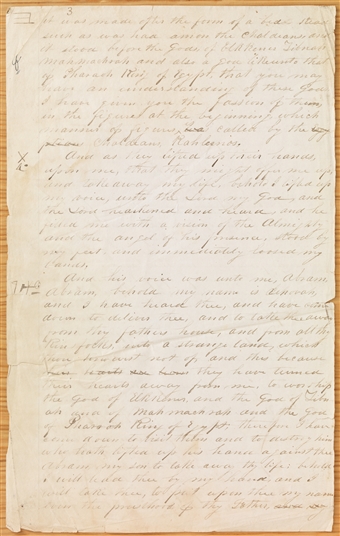 3
it was made after the form of a bedd stead
such as was had among the Chaldeans and
it stood before the Gods of Elkkener Zibnah
Mahmachrah and also a God like unto that
of Pharaoh King of Egypt that you may
have an understanding of these Gods
I have given you the fassion of them
in the figures at the beginning which
manner of figures is called by the
Chaldeans Kahleenos.
And as they lifted up their hands,
upon me, that they might offer me up,
and take away my life, behold I lifted up
my voice, unto the Lord my God, and
the Lord hearkened and heard, and he
filled me with a vision of the Almighty
and the angel of his presence stood by
my feet and immediately loosed my
bands.
And his voice was unto me, Abram,
Abram, behold my name is
and I have heard thee, and have come
down to deliver thee, and to take thee away
from thy fathers house, and from all thy
kin folks, into a strange land, which
thou knowest not of, and this because
they have turned
their hearts away from me, to worship
the God of Elkkener, and the God of Zibn
ah and of Mahmachrah and the God
of Pharaoh King of Egypt; therefore I have
come down to visit them and to destroy him
who hath lifted up his hand against thee
Abram my son to take away thy life: behold
I will lead thee by my hand, and I
will take thee, to put upon thee my name
even the priesthood of thy Father